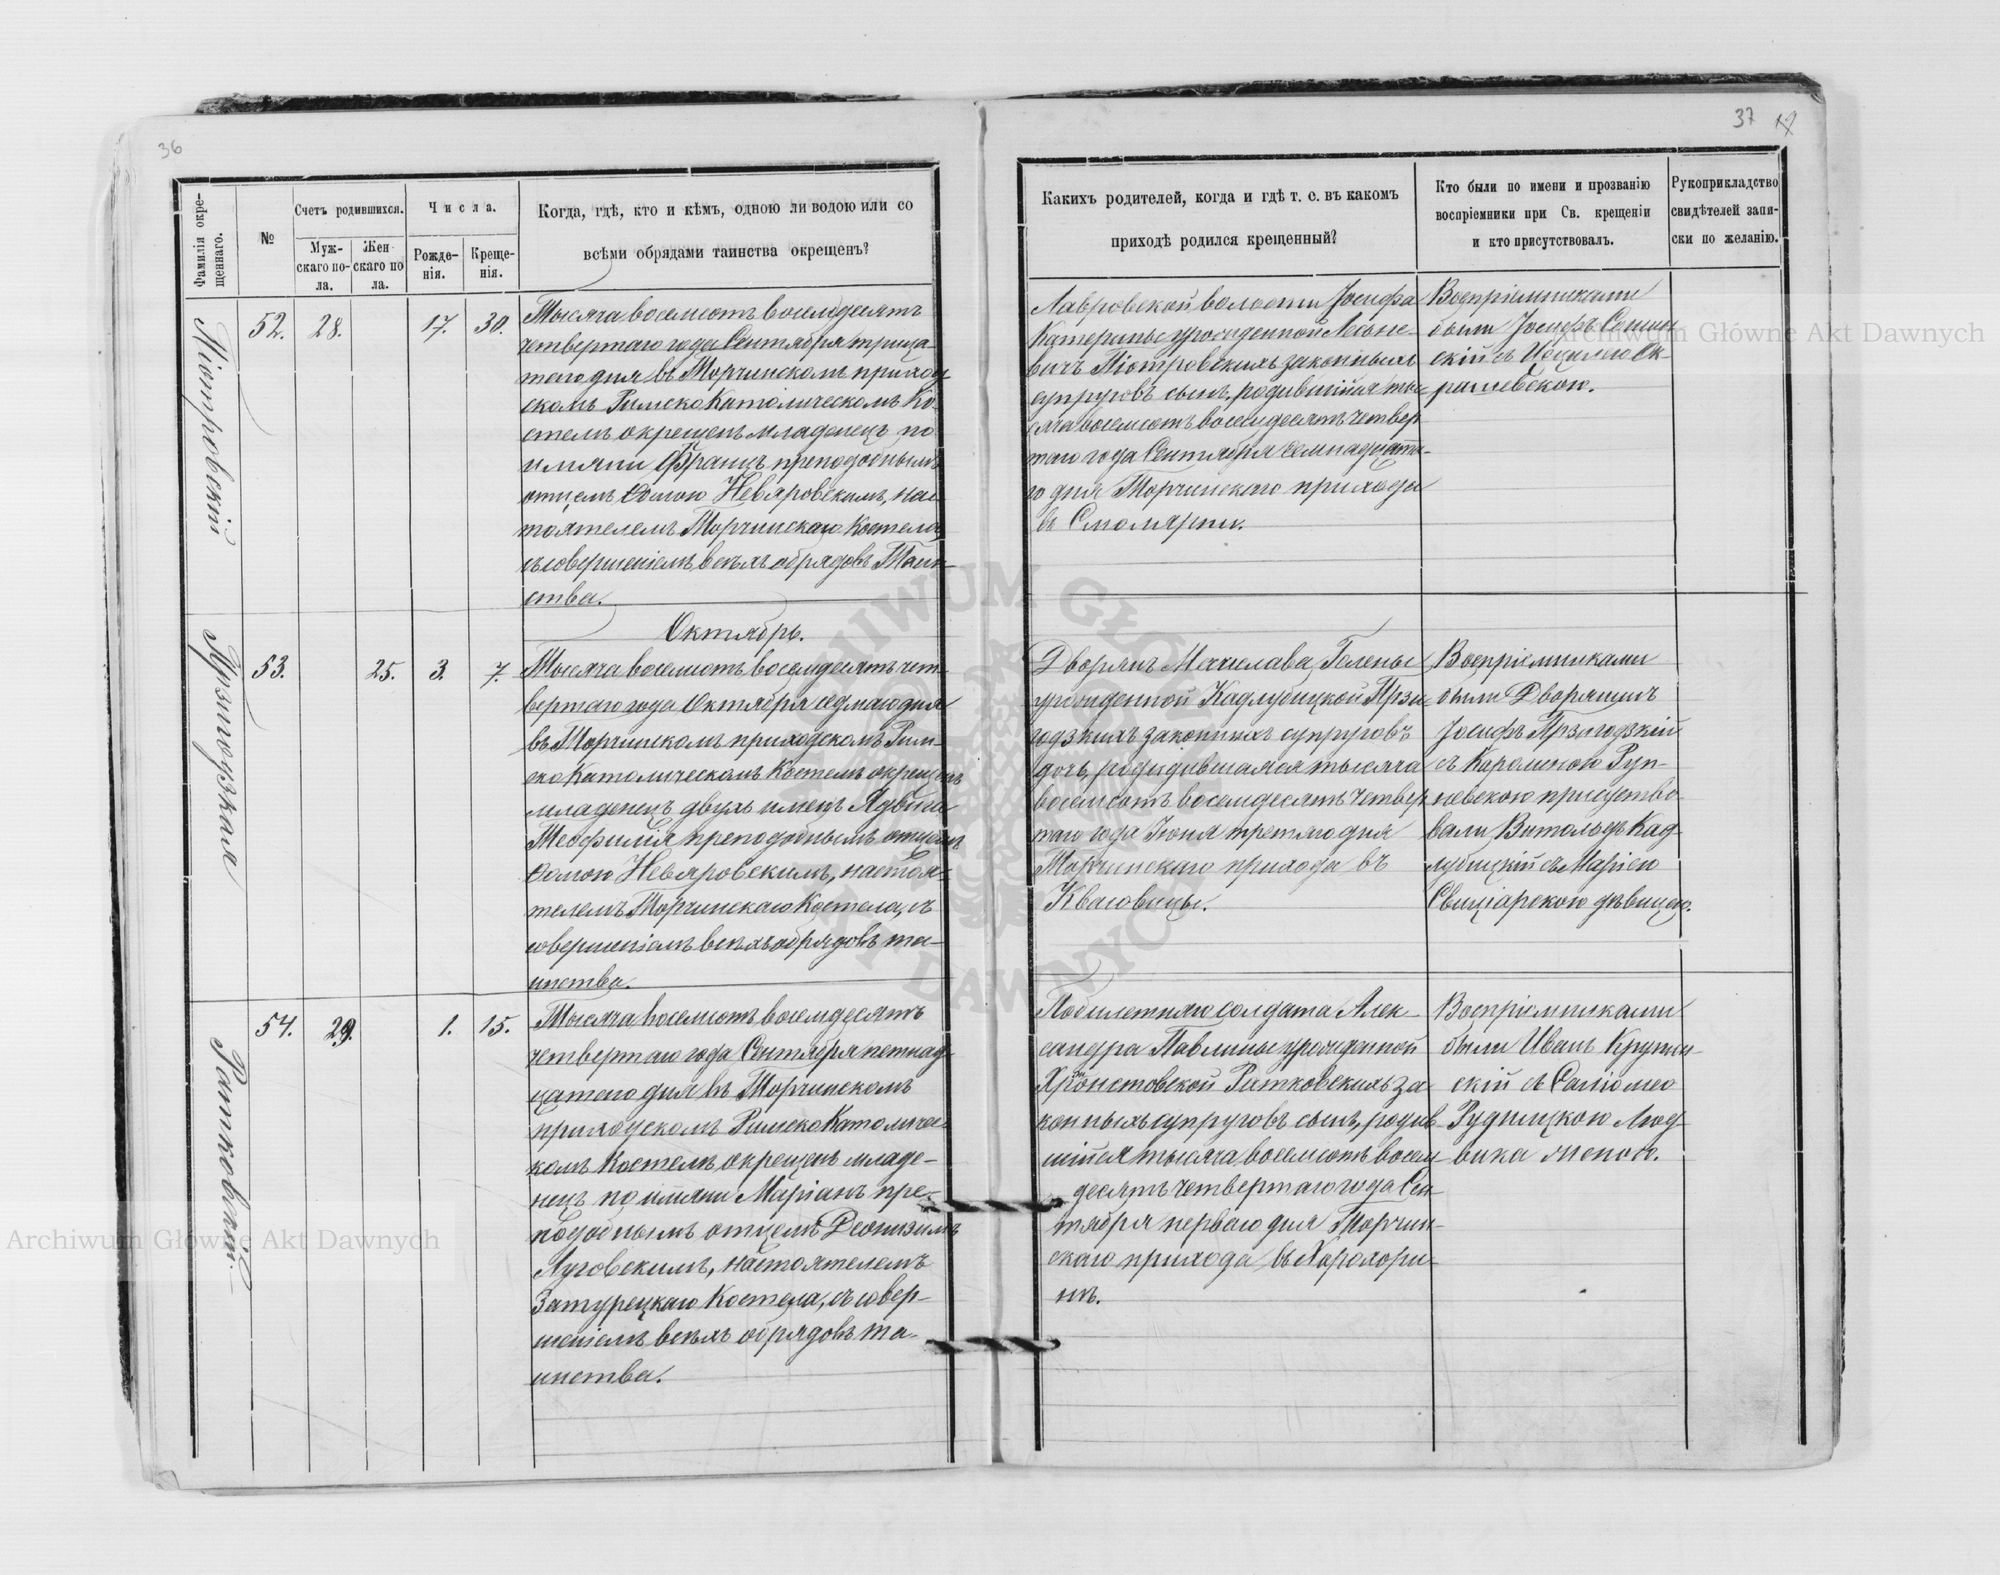 36
Фамилія окре-
щеннаго.
№
Счетъ родившихся.
Муж-
скаго по-
ла.
Жен
скаго по
ла.
Числа.
Рожде-
нія.
Креще-
нія.
Когда, гдѣ, кто и кѣмъ, одною ли водою или со
всѣми обрядами таинства окрещенъ?
Піотровскій
52.
28.
17.
30.
Тысяча восемсотъ восемдесятъ
четвертаго года Сентября трица-
таго дня въ Торчинскомъ приход
скомъ Римско Католическомъ Ко-
стелѣ окрещенъ младенецъ по
имяни Францъ преподобнымъ
отцемъ Ѳомою Невяровскимъ, нас
тоятелемъ Торчинскаго Костела,
съ совершеніемъ всѣхъ обрядовъ Таин-
ства.
Октябрь.
53.
25.
3.
7.
Тысяча восемсотъ восемдесятъ чет-
вертаго года Октября седмаго дня
въ Торчинскомъ приходскомъ Рим-
ско Католическомъ Костелѣ окрещенъ
младенецъ двухъ именъ Ядвига
Теофилія преподобнымъ отцемъ
Ѳомою Невяровскимъ, настоя-
телемъ Торчинскаго Костела, съ
совершеніемъ всѣхъ обрядовъ та-
инства.
Ратковскій
54.
29.
1.
15.
Тысяча восемсотъ восемдесятъ
четвертаго года Сентября петнад-
цатаго дня въ Торчинскомъ
приходскомъ Римско Католичес
комъ Костелѣ окрещенъ младе-
нецъ по имяни Маріанъ пре-
подобнымъ отцемъ Деонизимъ
Луговскимъ, настоятелемъ
Затурецкаго Костела, съ совер-
шеніемъ всѣхъ обрядовъ та-
инства.
37
Какихъ родителей, когда и гдѣ т. е. въ какомъ
приходѣ родился крещенный?
Кто были по имени и прозванію
воспріемники при Св. крещеніи
и кто присутствовалъ.
Рукоприкладство
свидѣтелей запи-
ски по желанію.
Лавровской волости Іосифа
Катерины урожденной
Піотровскихъ законныхъ
супруговъ сынъ, родившійся ты-
сяча восемсотъ восемдесятъ четвер
таго года Сентября семнадцата-
го дня Торчинскаго прихода
въ Смолярни.
Воспріемниками
были Іосифъ
скій съ
рашевскою.
Дворянъ Мечислава, Гелены
урожденной Кадлубицкой Прзи
годзкихъ законныхъ супруговъ
дочь, родидившаяся тысяча
восемсотъ восемдесятъ четвер
таго года Іюня третяго дня
Торчинскаго прихода въ
Квасовицы.
Воспріемниками
были Дворянинъ
Іосифъ Прзигодзкій
съ Каролиною Руп-
невскою присутство
вали Витольдъ Кад-
лубицкій съ Маріею
Свицярскою дѣвицею.
Побилетнаго солдата Алек-
сандра Павлины урожденной
Ратковскихъ за
конныхъ супруговъ сынъ, родив
шійся тысяча восемсотъ восем-
десятъ четвертаго года Сен-
тября перваго дня Торчин-
скаго прихода въ Хорохори-
нѣ.
Воспріемниками
были Иванъ Крупин-
скій съ Саломею
Рудницкою Люд-
вика женою.
Archiwum Główne Akt Dawnych
Archiwum Główne Akt Dawnych
ARCHIWUM GŁÓWNE AKT DAWNYCH